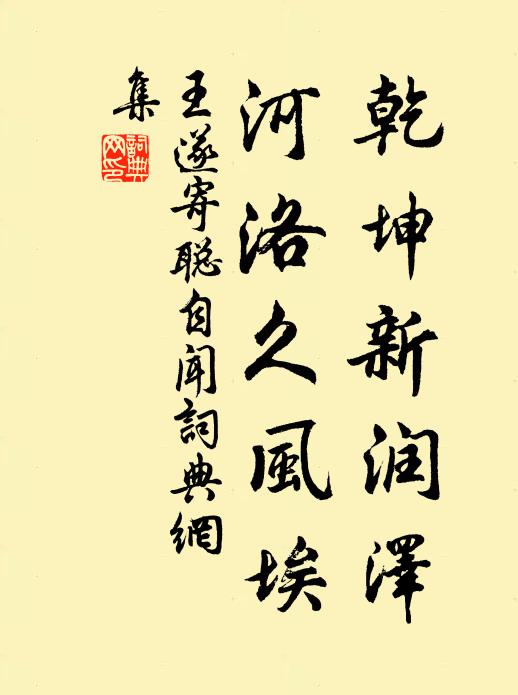 乾坤新润澤
河洛久風埃
王遂寄聪自聞詞典網
集
詞典網印